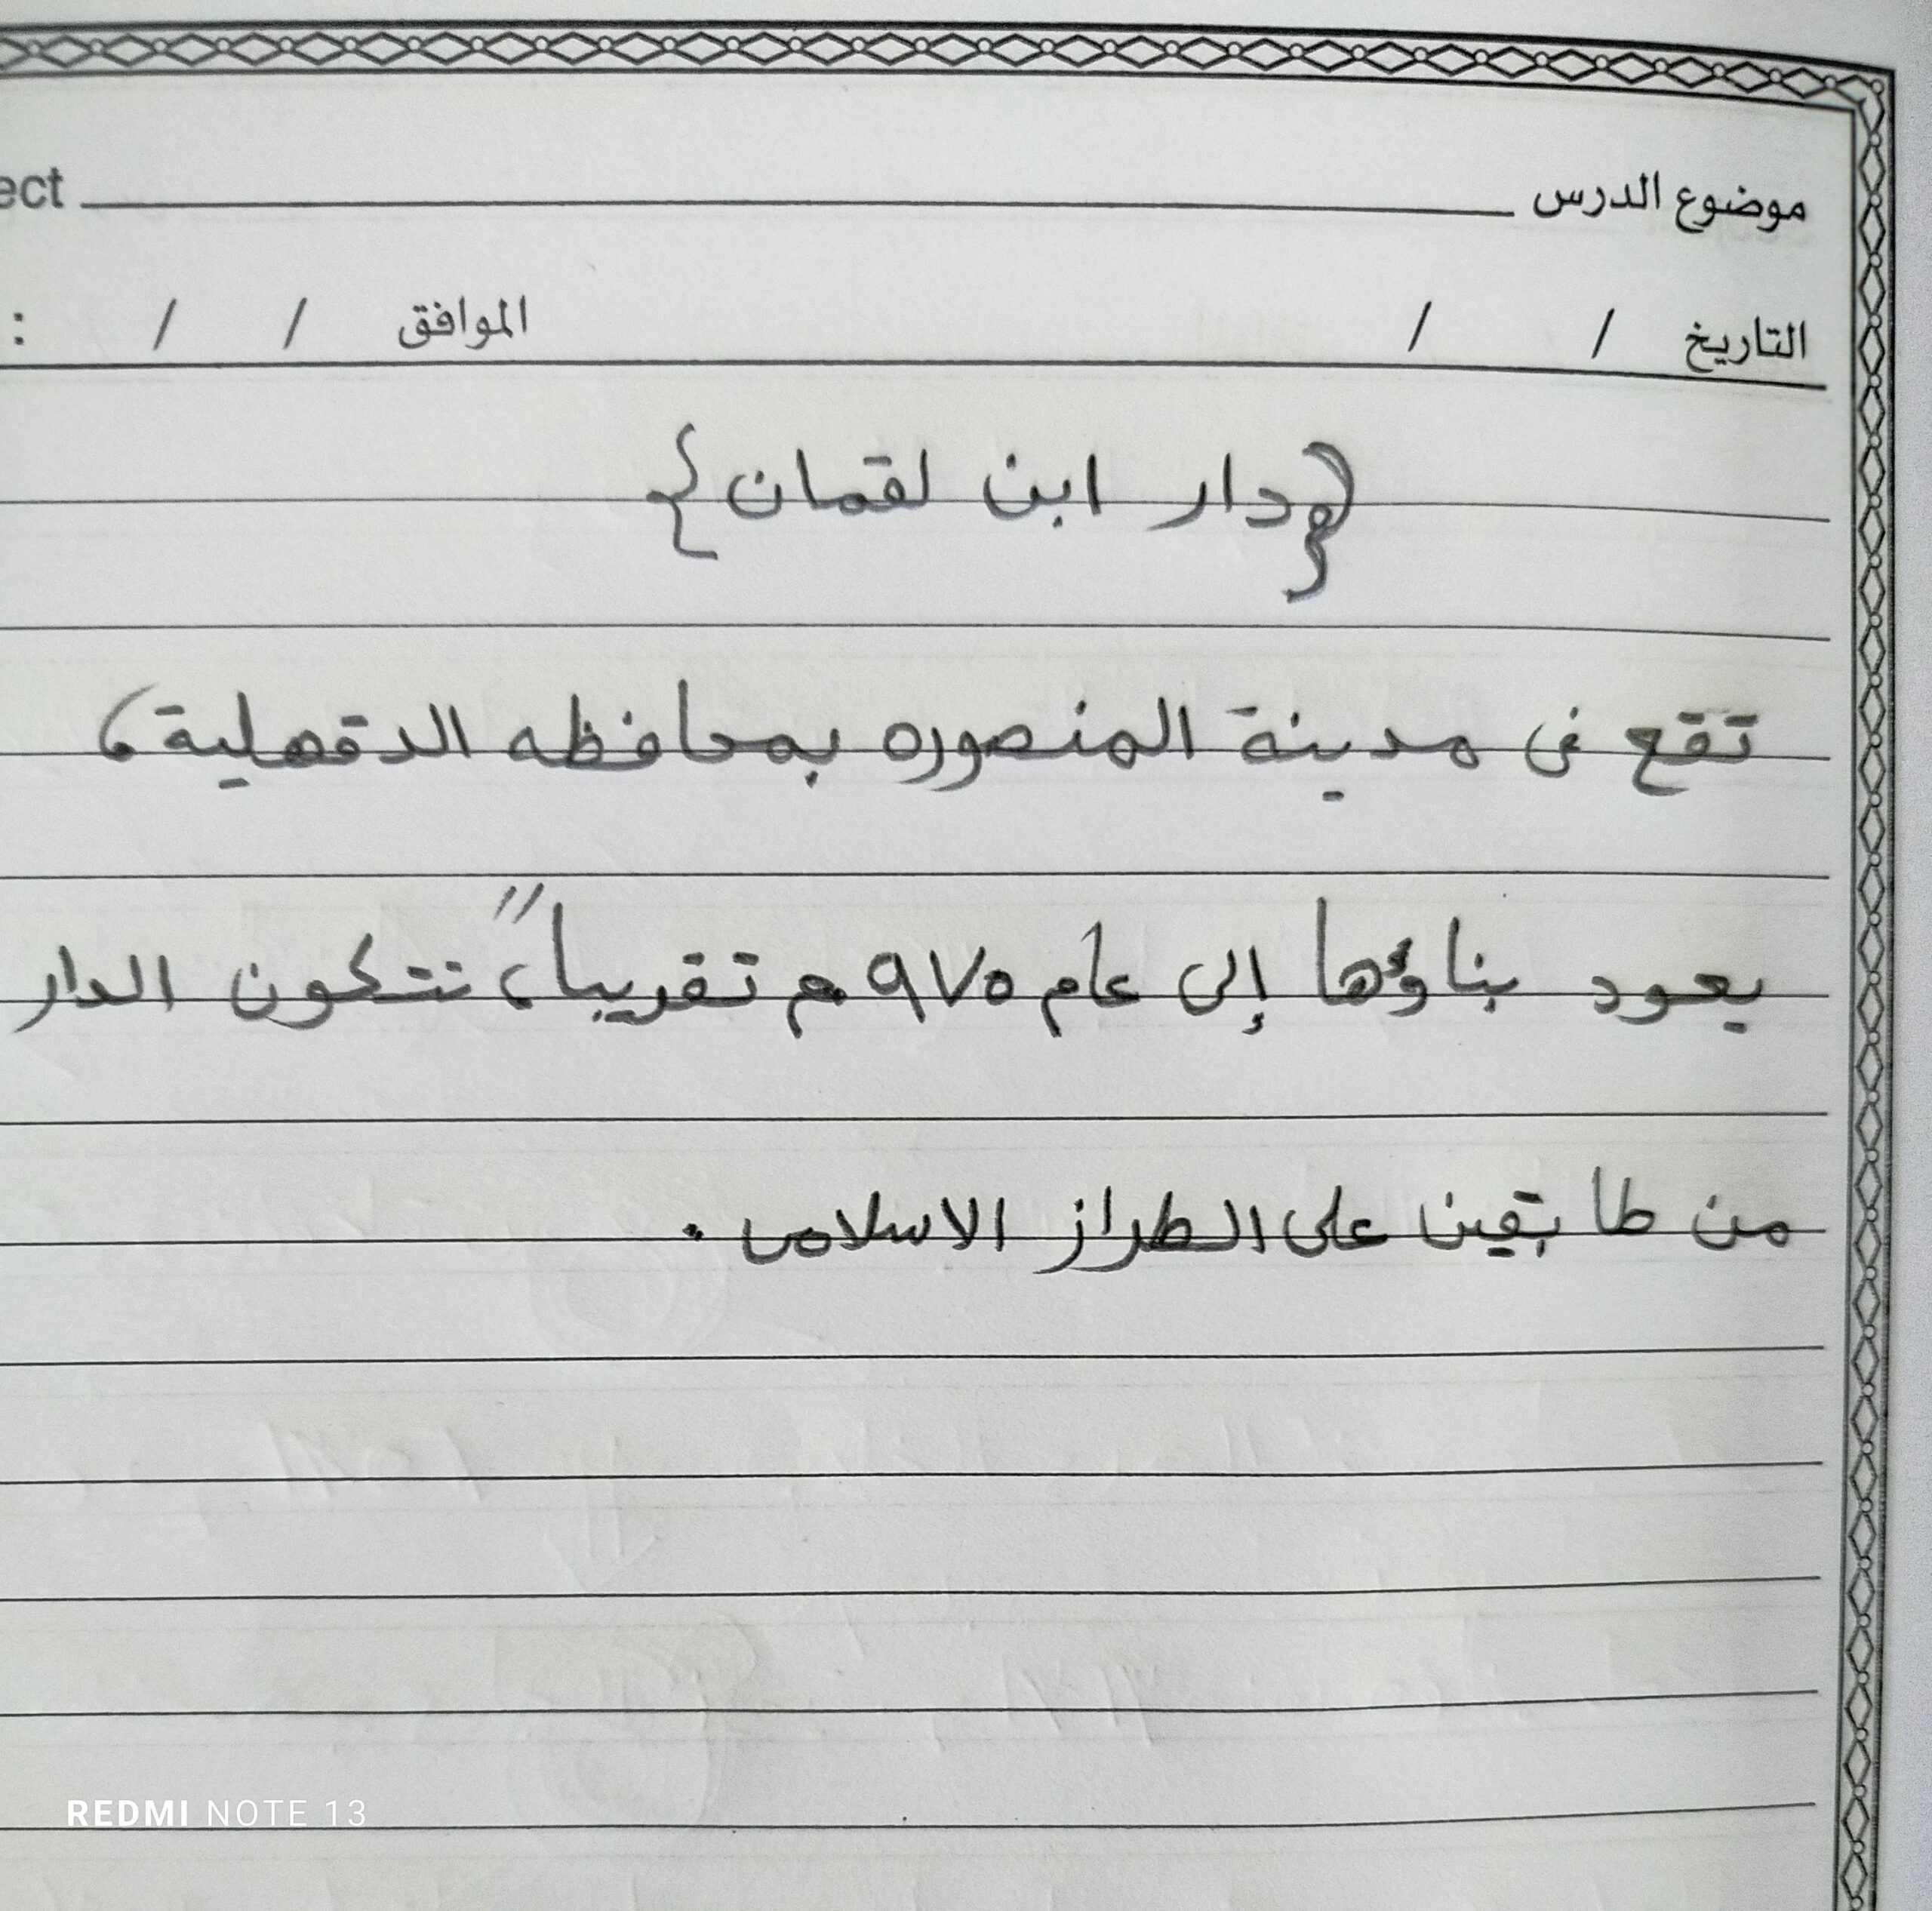 موضوع الدرس ect
التاريخ / / الموافق / / :
{دار ابن لقمان}
تقع فى مدينة المنصوره بمحافظه الدقهلية،
يعود بناؤها إلى عام ٩٧٥ م تقريباً، تتكون الدار
من طابقين على الطراز الاسلامى .
REDMI NOTE 13